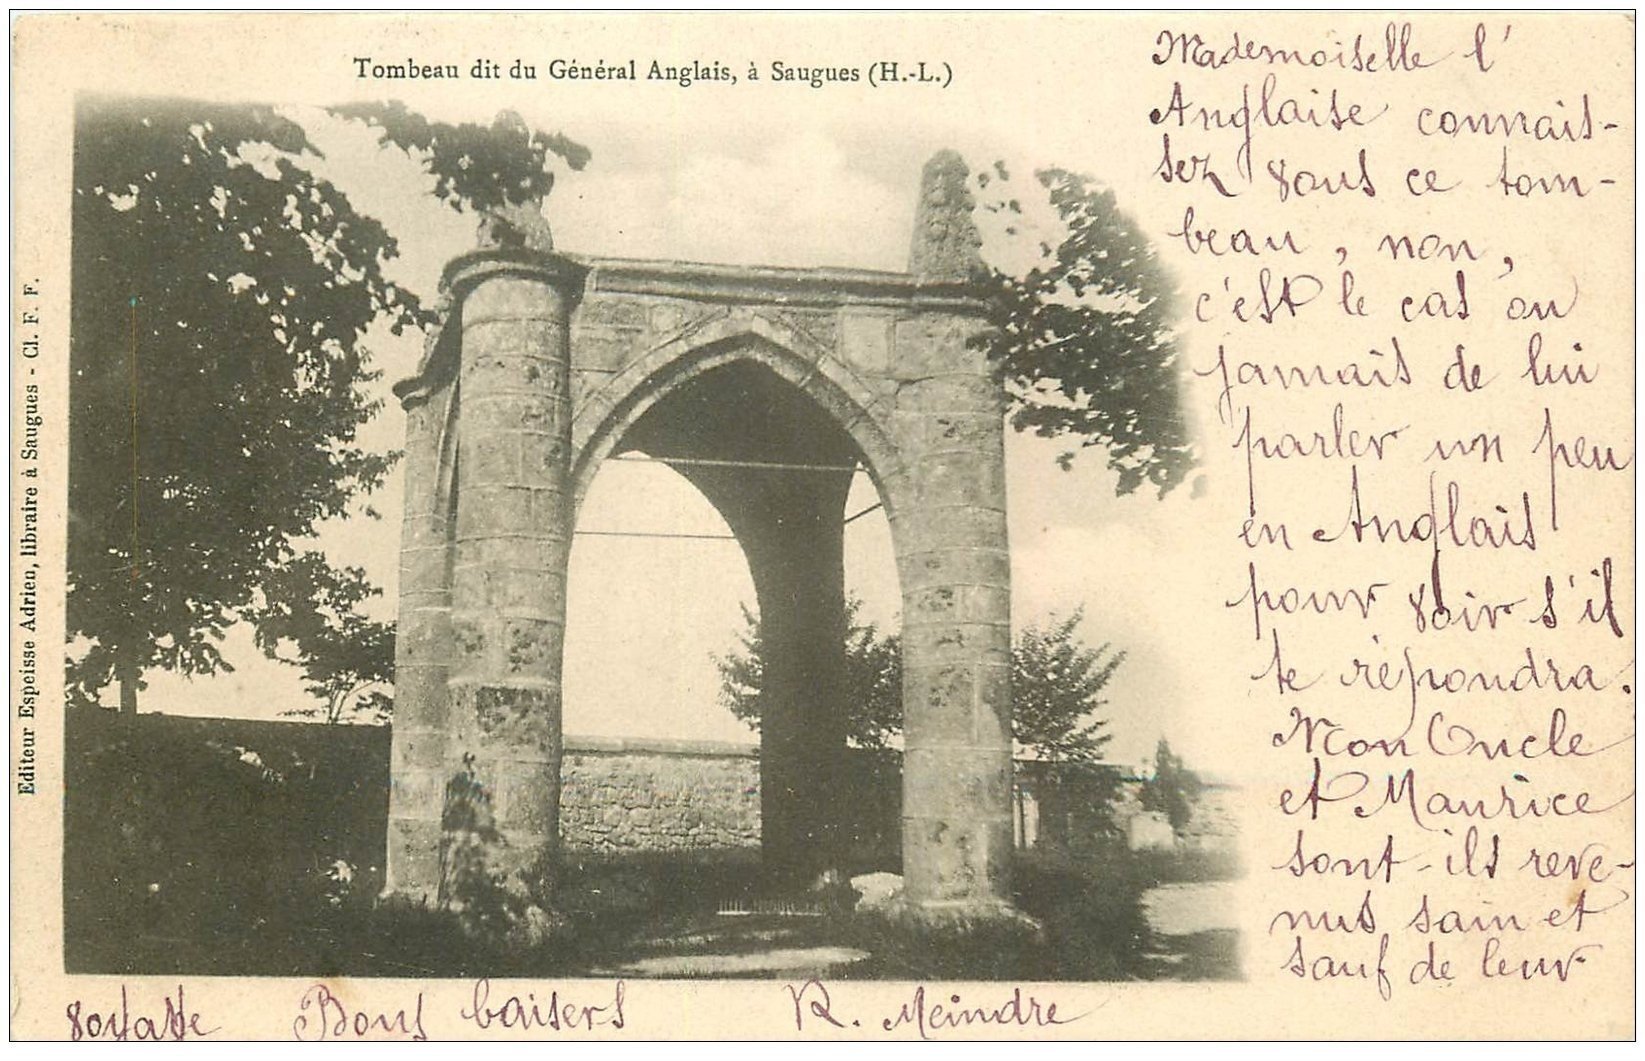 Tombeau dit du Général Anglais, à Saugues (H.-L.)
Editeur Espeisse Adrien, libraire à Saugues - Cl. F. F.
Mademoiselle l'
Anglaise connais-
sez vous ce tom-
beau, non,
c'est le cas ou
jamais de lui
parler un peu
en Anglais
pour voir s'il
te répondra.
Mon Oncle
et Maurice
sont-ils reve-
nus sain et
sauf de leur
voyage Bons baisers R. Meindre